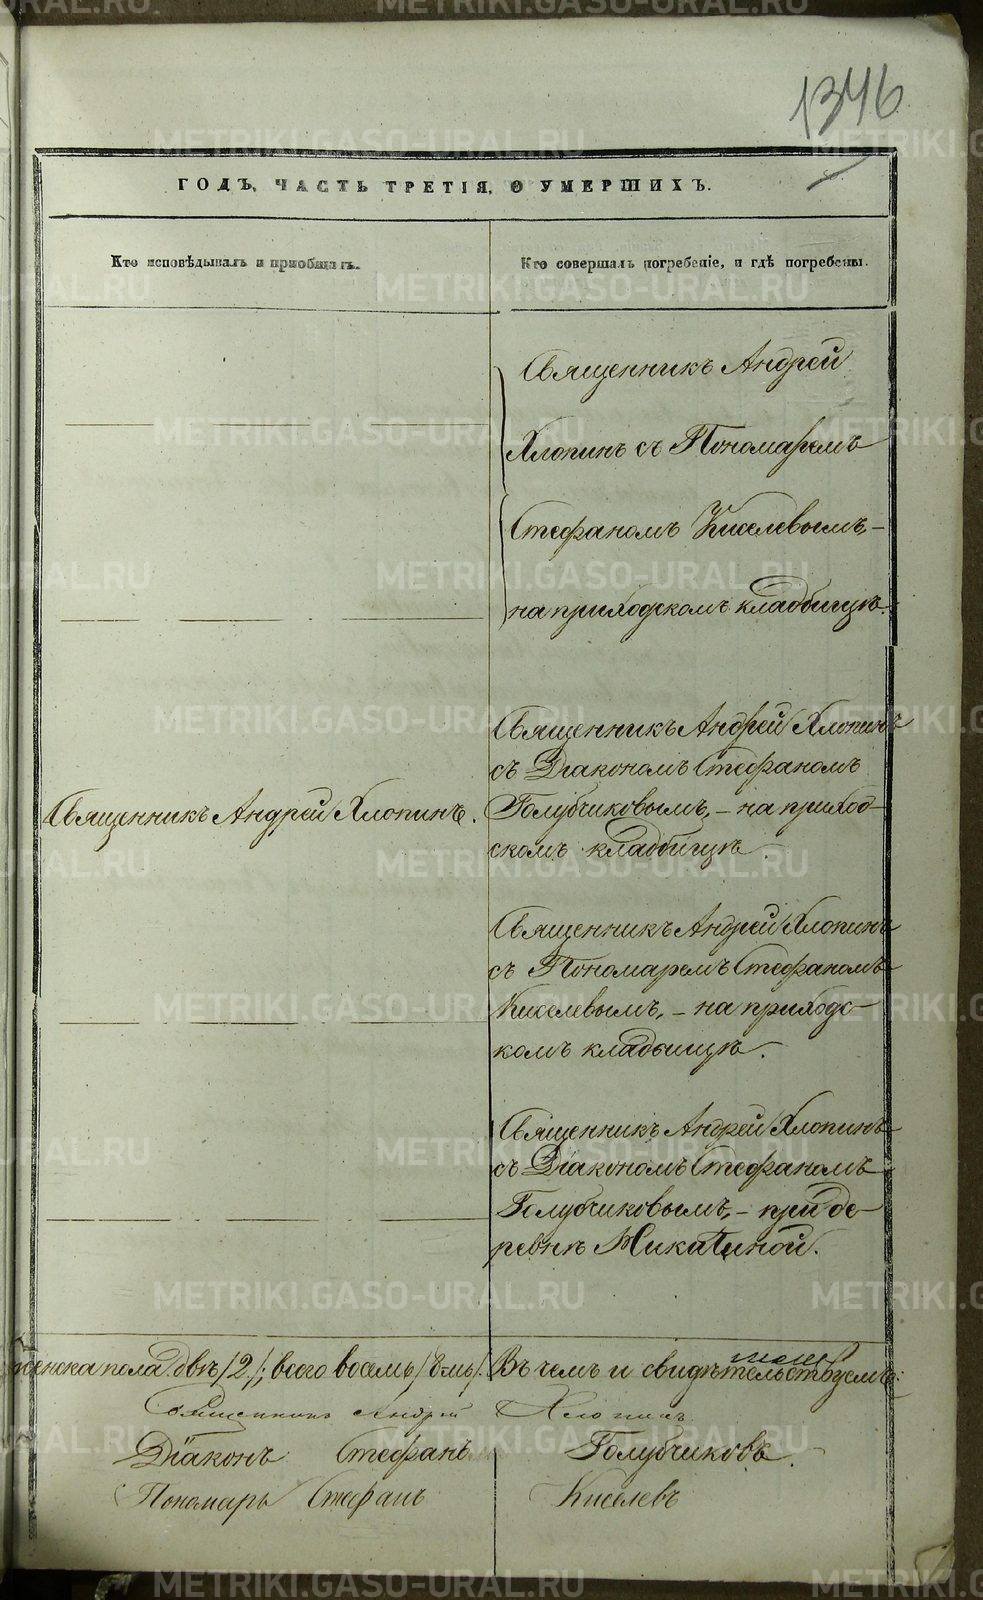 1346
ГОДЪ, ЧАСТЬ ТРЕТІЯ, О УМЕРШИХЪ.
Кто исповѣдывалъ и пріобщалъ.
Кто совершалъ погребеніе, и гдѣ погребены.
Священникъ Андрей
Хлопинъ съ Пономаремъ
Стефаномъ Киселевымъ, –
на приходскомъ кладбищѣ.
Священникъ Андрей Хлопинъ.
Священникъ Андрей Хлопинъ
съ Діакономъ Стефаномъ
Голубчиковымъ, – на приход-
скомъ кладбищѣ.
Священникъ Андрей Хлопинъ
съ Пономаремъ Стефаномъ
Киселевымъ, – на приходс-
комъ кладбищѣ.
Священникъ Андрей Хлопинъ
съ Діакономъ Стефаномъ
Голубчиковымъ, – при де-
ревнѣ Микатиной.
женска пола двѣ /2/; всего восемь / 8мь /. Въ чемъ и свидѣтельствуемъ:
Священникъ Андрей Хлопинъ
Діаконъ Стефанъ Голубчиковъ.
Пономарь Стефанъ Киселевъ
METRIKI.GASO-URAL.RU